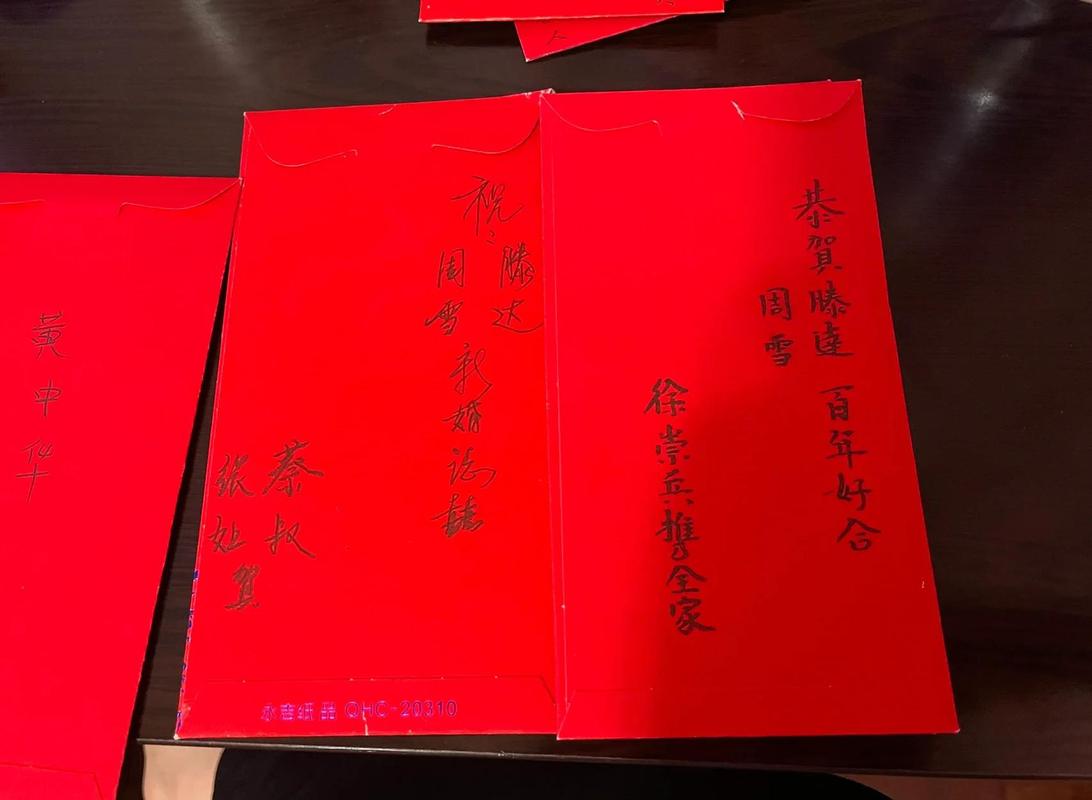 人
恭賀滕達
周雪
百年好合
徐崇兵携全家
祝:滕达
周雪
新婚誌囍
蔡叔
张姐
贺
永吉纸品 QHC-20310
黄中华